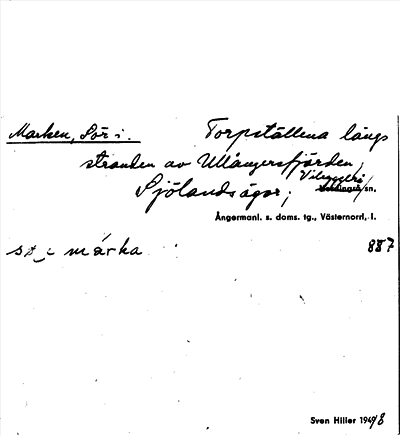 Marken, Sör i. Torpställena längs
stranden av Ullångersfjärden,
Sjölands ägor; Vibyggerå sn.
Ångermanl. s. doms. tg., Västernorrl. l.
sö i márka 887
Sven Hiller 1948